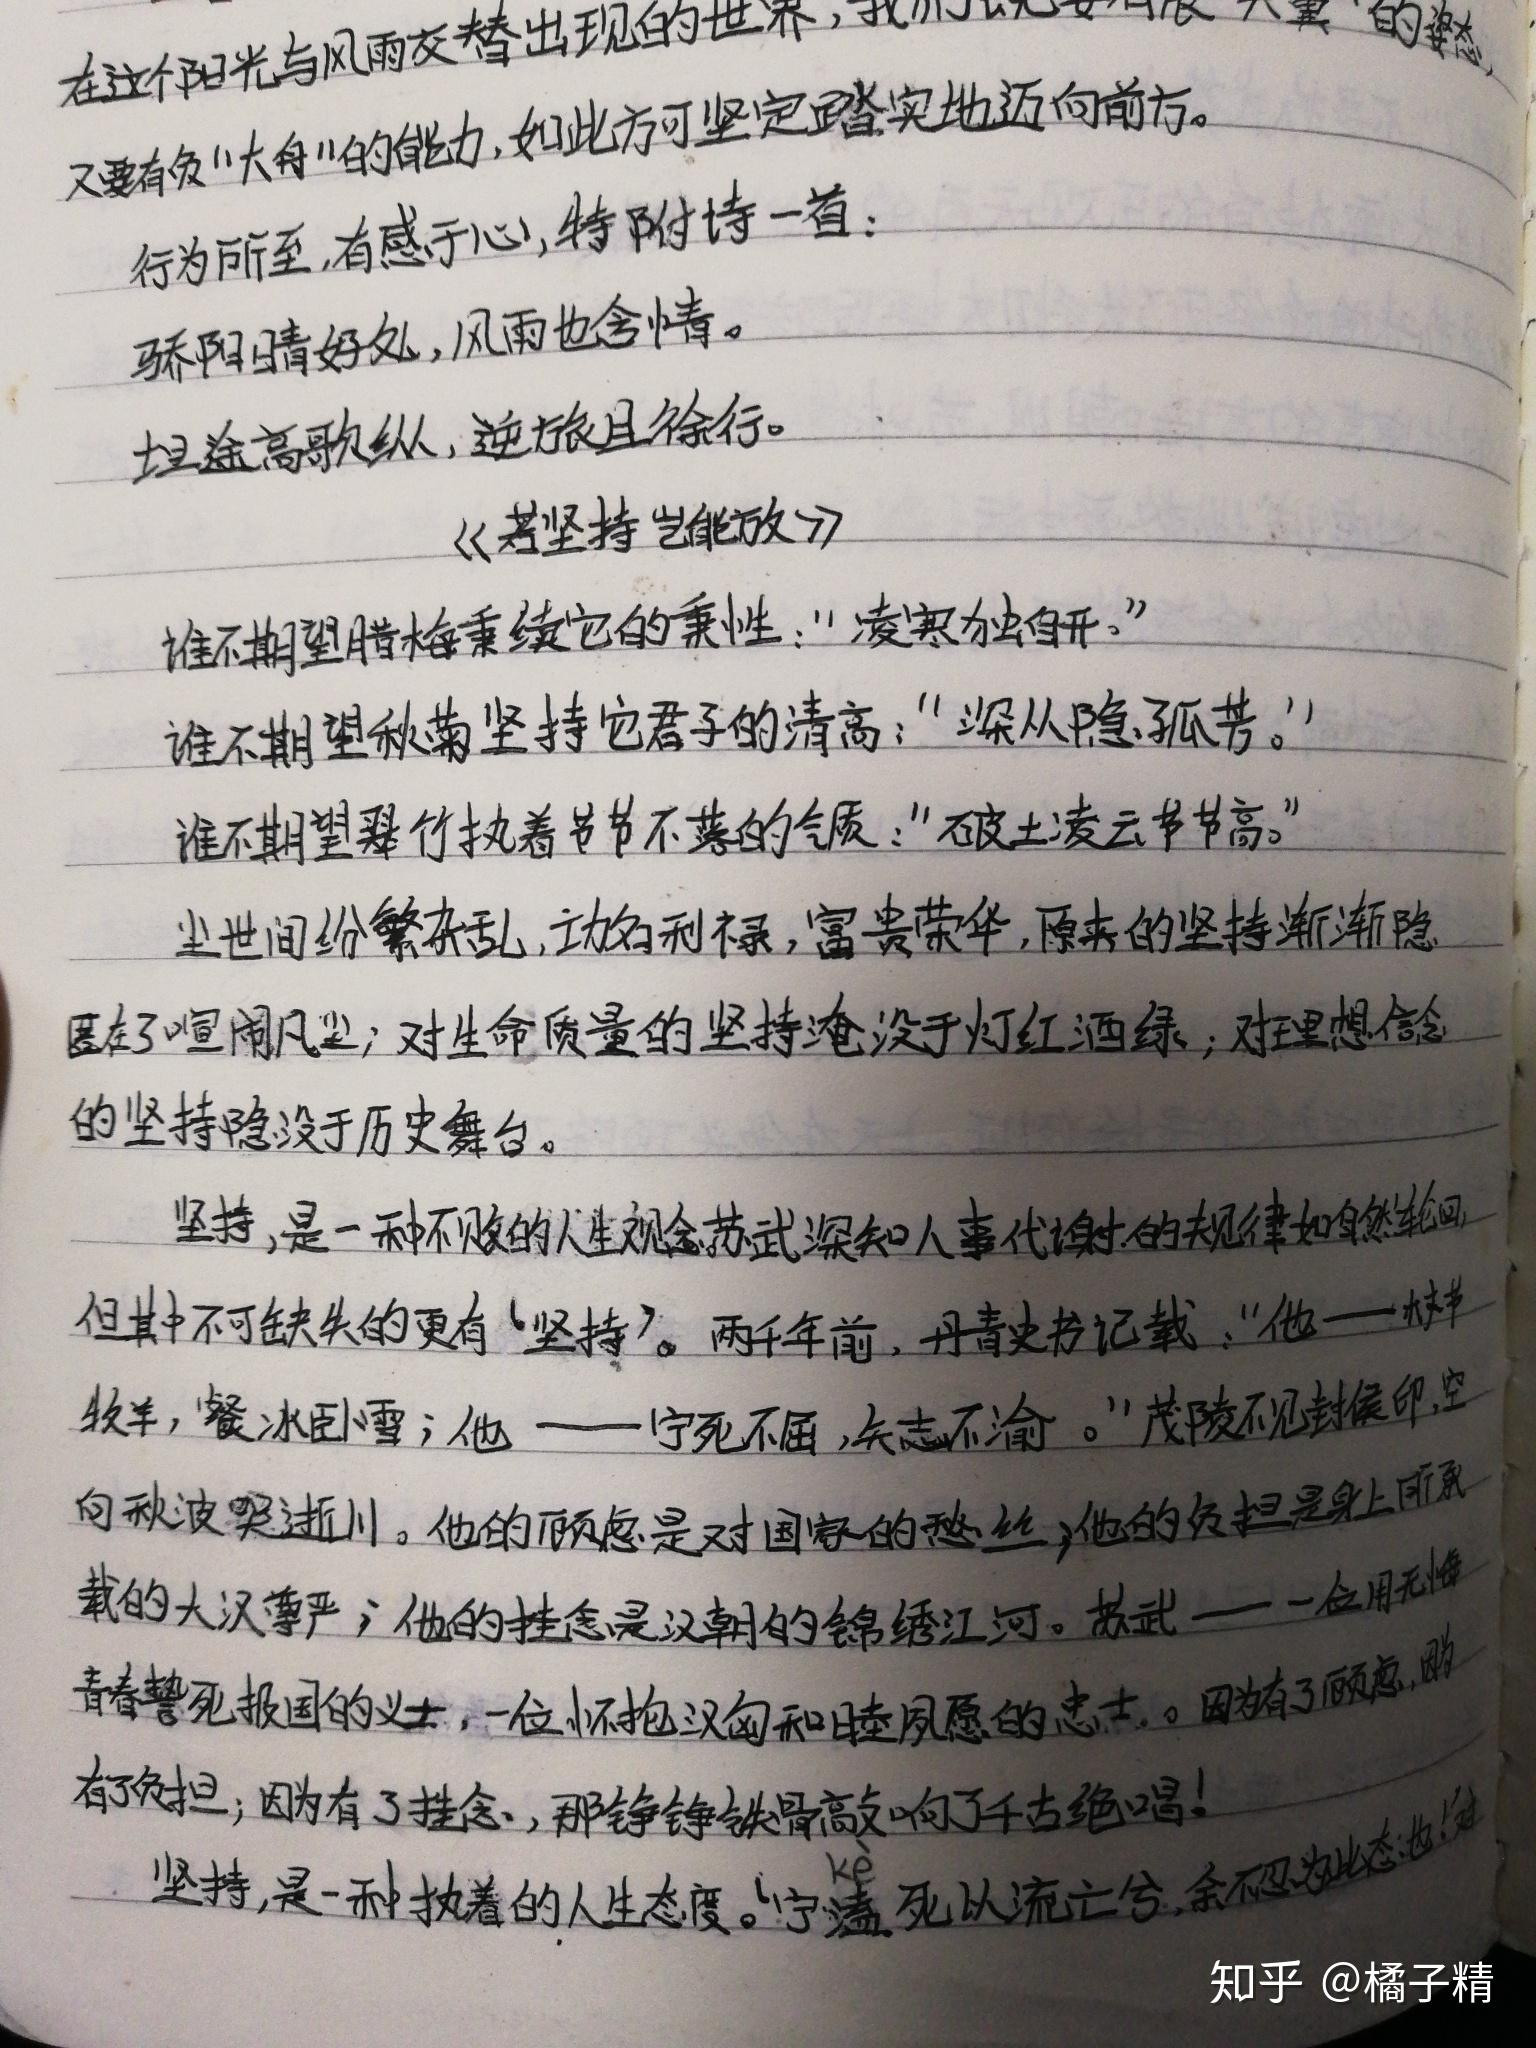 在这个阳光与风雨交替出现的世界,我们既要有展"大翼"的姿态,
又要有负"大舟"的能力,如此方可坚定踏实地迈向前方。
行为所至,有感于心,特附诗一首:
骄阳晴好处,风雨也含情。
坦途高歌纵,逆旅且徐行。
《若坚持岂能放》
谁不期望腊梅秉续它的秉性:"凌寒独自开。"
谁不期望秋菊坚持它君子的清高:"深从隐孤芳。"
谁不期望翠竹执着节节不落的气质:"破土凌云节节高。"
尘世间纷繁杂乱,功名利禄,富贵荣华,原来的坚持渐渐隐
匿在了喧闹凡尘;对生命质量的坚持淹没于灯红酒绿;对理想信念
的坚持隐没于历史舞台。
坚持,是一种不败的人生观念。苏武深知人事代谢的规律如自然轮回,
但其中不可缺失的更有'坚持'。两千年前,丹青史书记载:"他——杖节
牧羊,餐冰卧雪;他——宁死不屈,矢志不渝。"茂陵不见封侯印,空
向秋波哭逝川。他的顾虑是对国家的愁丝;他的负担是身上所承
载的大汉尊严;他的挂念是汉朝的锦绣江河。苏武——一位用无悔
青春誓死报国的义士,一位怀抱汉匈和睦夙愿的忠士。因为有了顾虑,因为
有了负担;因为有了挂念,那铮铮铁骨敲响了千古绝唱!
kè
坚持,是一种执着的人生态度。'宁溘死以流亡兮,余不忍为此态也!'
知乎 @橘子精